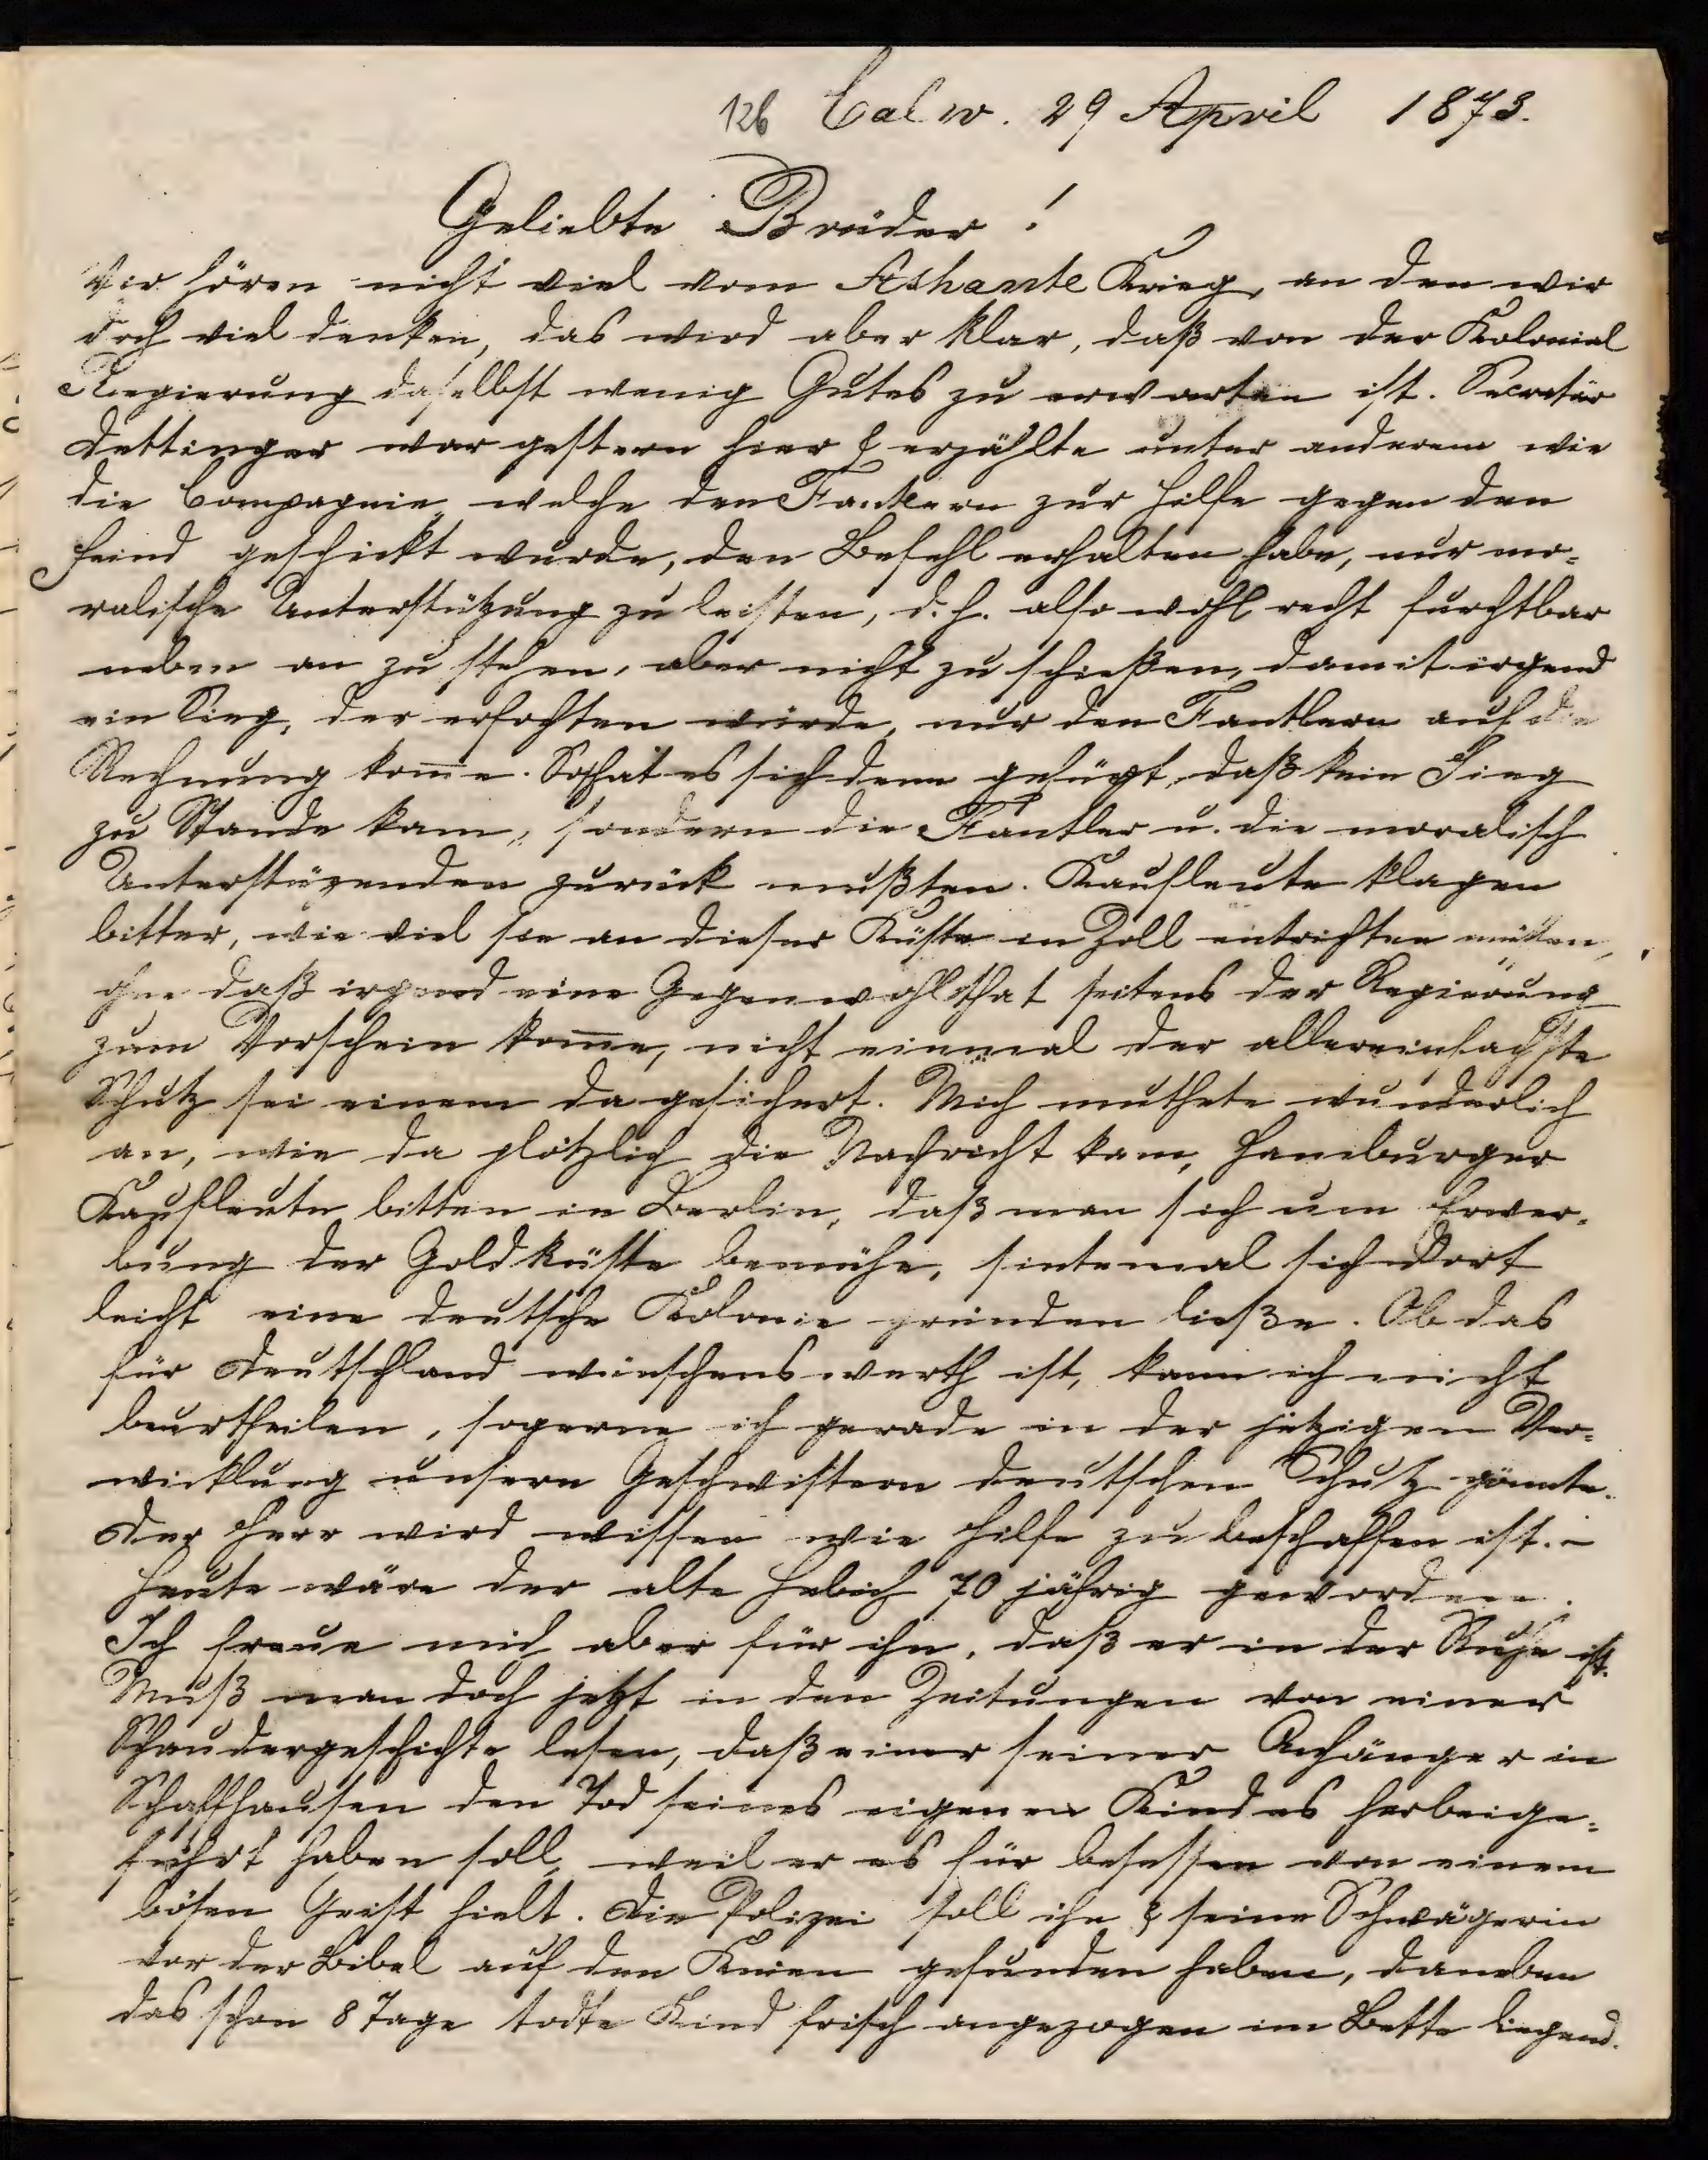 126 Calw. 29 April 1873.
Geliebte Brüder!
Wir hören nicht viel vom Ashante Krieg, an den wir
doch viel denken, das wird aber klar, daß von der Kolonial
Regierung daselbst wenig Gutes zu erwarten ist. Secretär
Dettinger war gestern hier & erzählte unter anderem wie
die Compagnie, welche den Fantlern zur Hilfe gegen den
Feind geschickt wurde, den Befehl erhalten habe, nur mo=
ralische Unterstützung zu leisten, d. h. also wohl recht furchtbar
neben an zu stehen, aber nicht zu schießen, damit irgend
ein Sieg, der erfochten würde, nur den Fantlern auf die
Rechnung kom̅e. So hat es sich denn gefügt, daß kein Sieg
zu Stande kam, sondern die Fantler u. die moralisch
Unterstüzenden zurück mußten. Kaufleute klagen
bitter, wie viel sie an dieser Küste in Zoll entrichten müßten,
ohne daß irgend eine Gegenwohlthat seitens der Regierung
zum Vorschein kom̅e, nicht einmal der allereinfachste
Schutz sei einem da gesichert. Mich muthete wunderlich
an, wie da plötzlich die Nachricht kam, Hamburger
Kaufleute bitten in Berlin, daß man sich um Erwer=
bung der Goldküste bemühe, sintemal sich dort
leicht eine deutsche Kolonie gründen ließe. Ob das
für Deutschland wünschenswerth ist, kann ich nicht
beurtheilen, so gerne ich gerade in der jetzigen Ver=
wicklung unsern Geschwistern deutschen Schutz gönnte.
Der Herr wird wissen wie Hilfe zu beschaffen ist. –
Heute wäre der alte Hebich 70 jährig geworden.
Ich freue mich aber für ihn, daß er in der Ruhe ist.
Muß man doch jetzt in den Zeitungen von einer
Schaudergeschichte lesen, daß einer seiner Anhänger in
Schaffhausen den Tod seines eigenen Kindes herbeige=
führt haben soll, weil er es für besessen von einem
bösen Geist hielt. Die Polizei soll ihn & seine Schwägerin
vor der Bibel auf den Knien gefunden haben, daneben
das schon 8 Tage todte Kind frisch angezogen im Bette liegend.